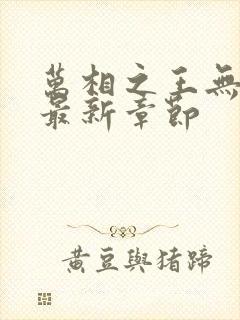 萬相之王無
最新章節
黃豆與猪蹄